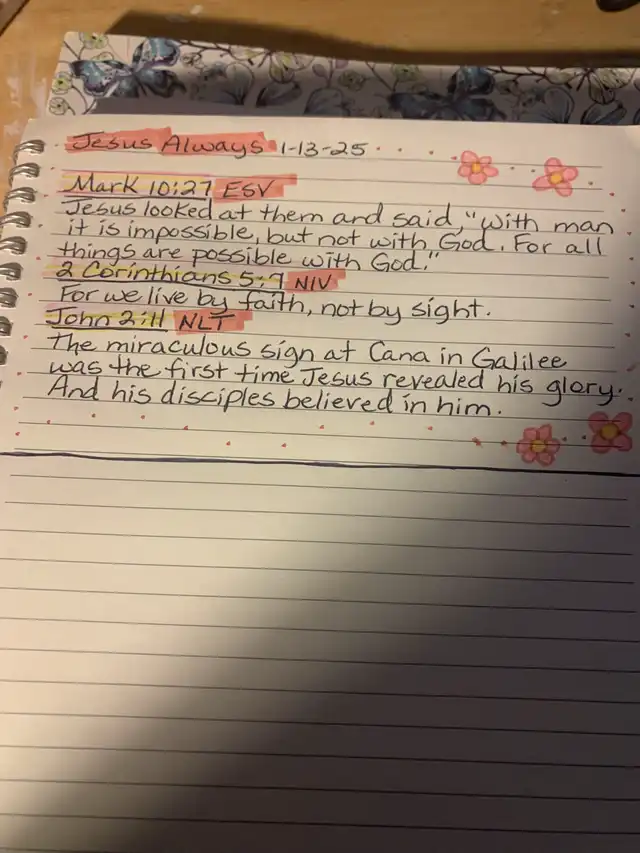 Jesus Always 1-13-25
Mark 10:27 ESV
Jesus looked at them and said, "with man
it is impossible, but not with God. For all
things are possible with God."
2 Corinthians 5:7 NIV
For we live by faith, not by sight.
John 2:11 NLT
The miraculous sign at Cana in Galilee
was the first time Jesus revealed his glory.
And his disciples believed in him.